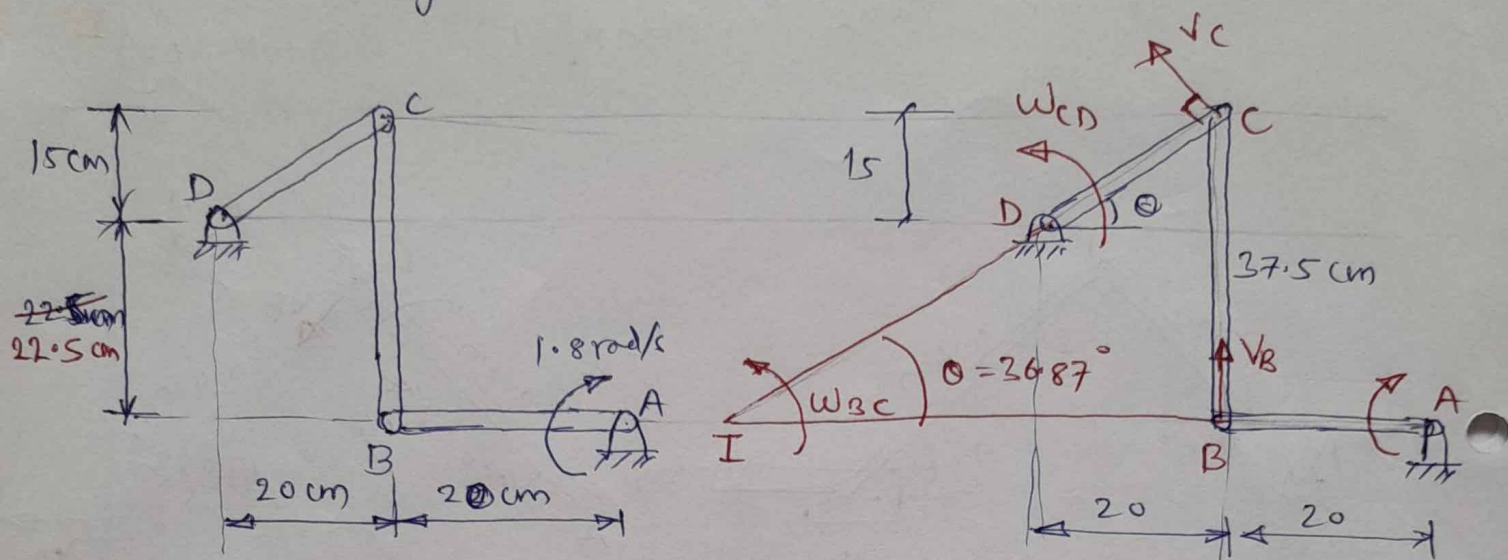 C
15cm
D
22.5cm
22.5 cm
1.8 rad/s
A
B
20 cm
20 cm
VC
ωCD
C
15
D
θ
37.5 cm
VB
θ = 36.87°
ωBC
A
I
B
20
20